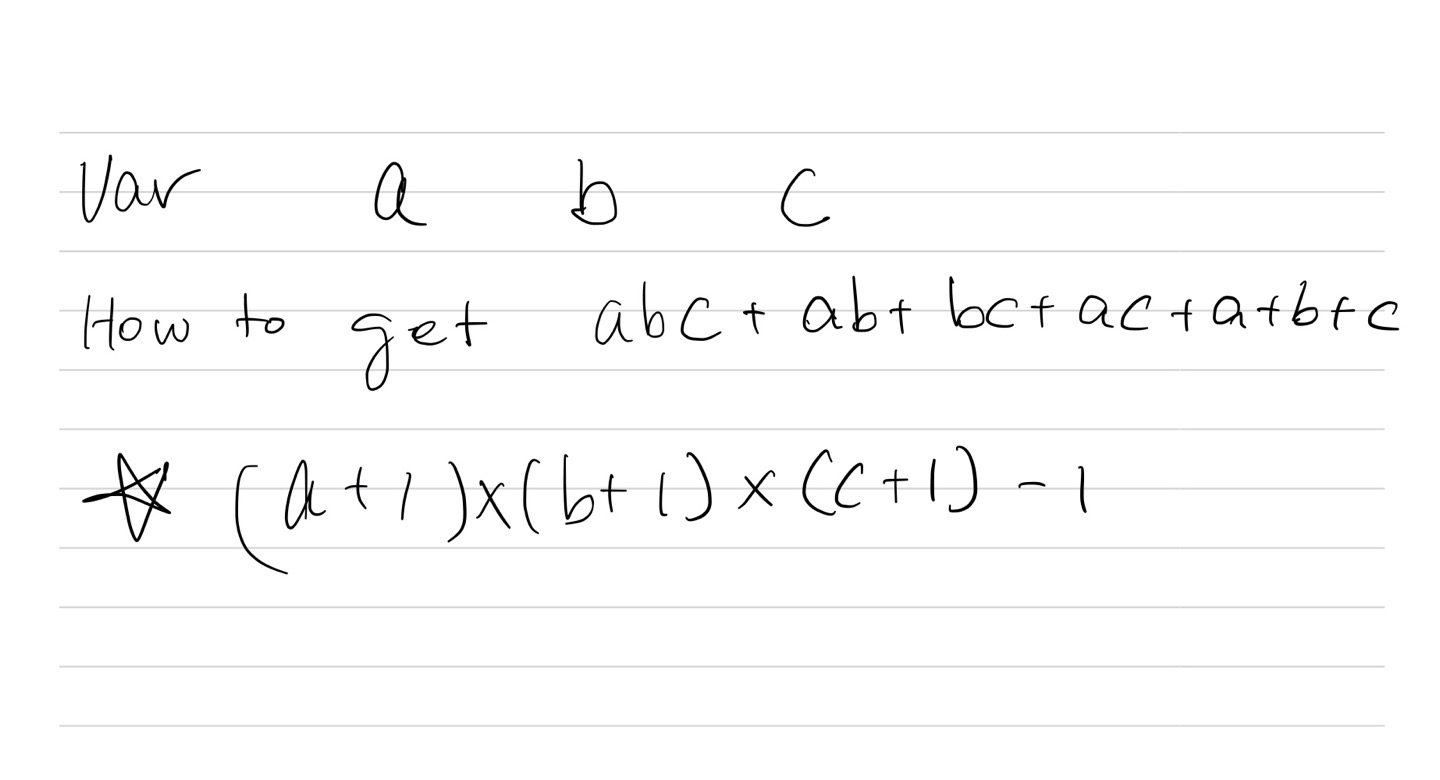 Var a b c
How to get abc + ab + bc + ac + a + b + c
☆ (a + 1) x (b + 1) x (c + 1) - 1